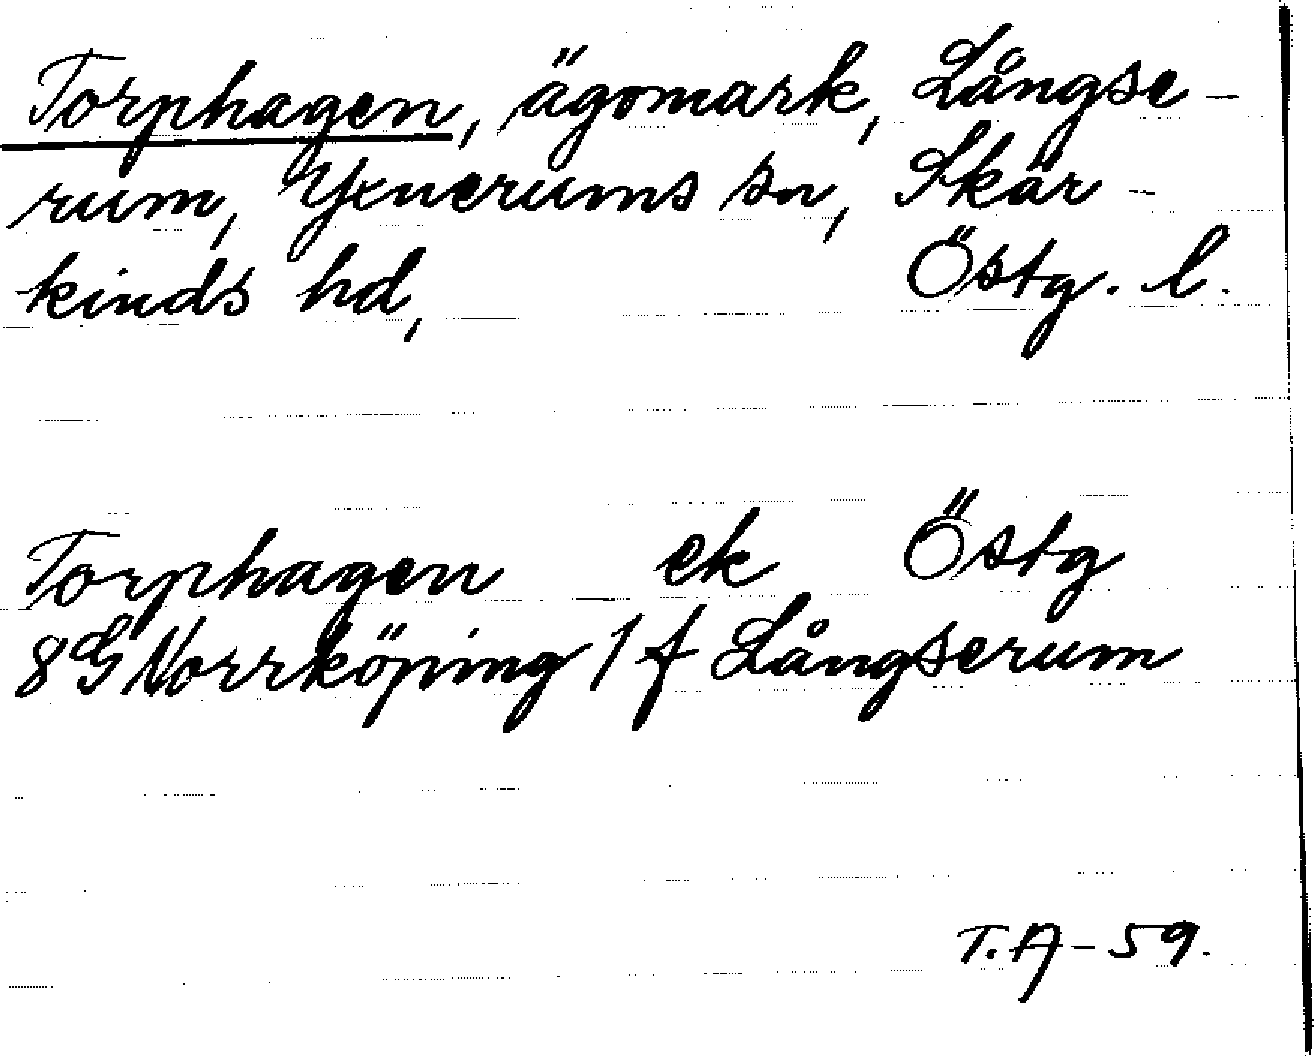 Torphagen, ägomark, Långse-
rum, Yxnerums sn, Skär-
kinds hd, Östg. l.
Torphagen ek Östg
8G Norrköping 1 f Långserum
T.A-59.